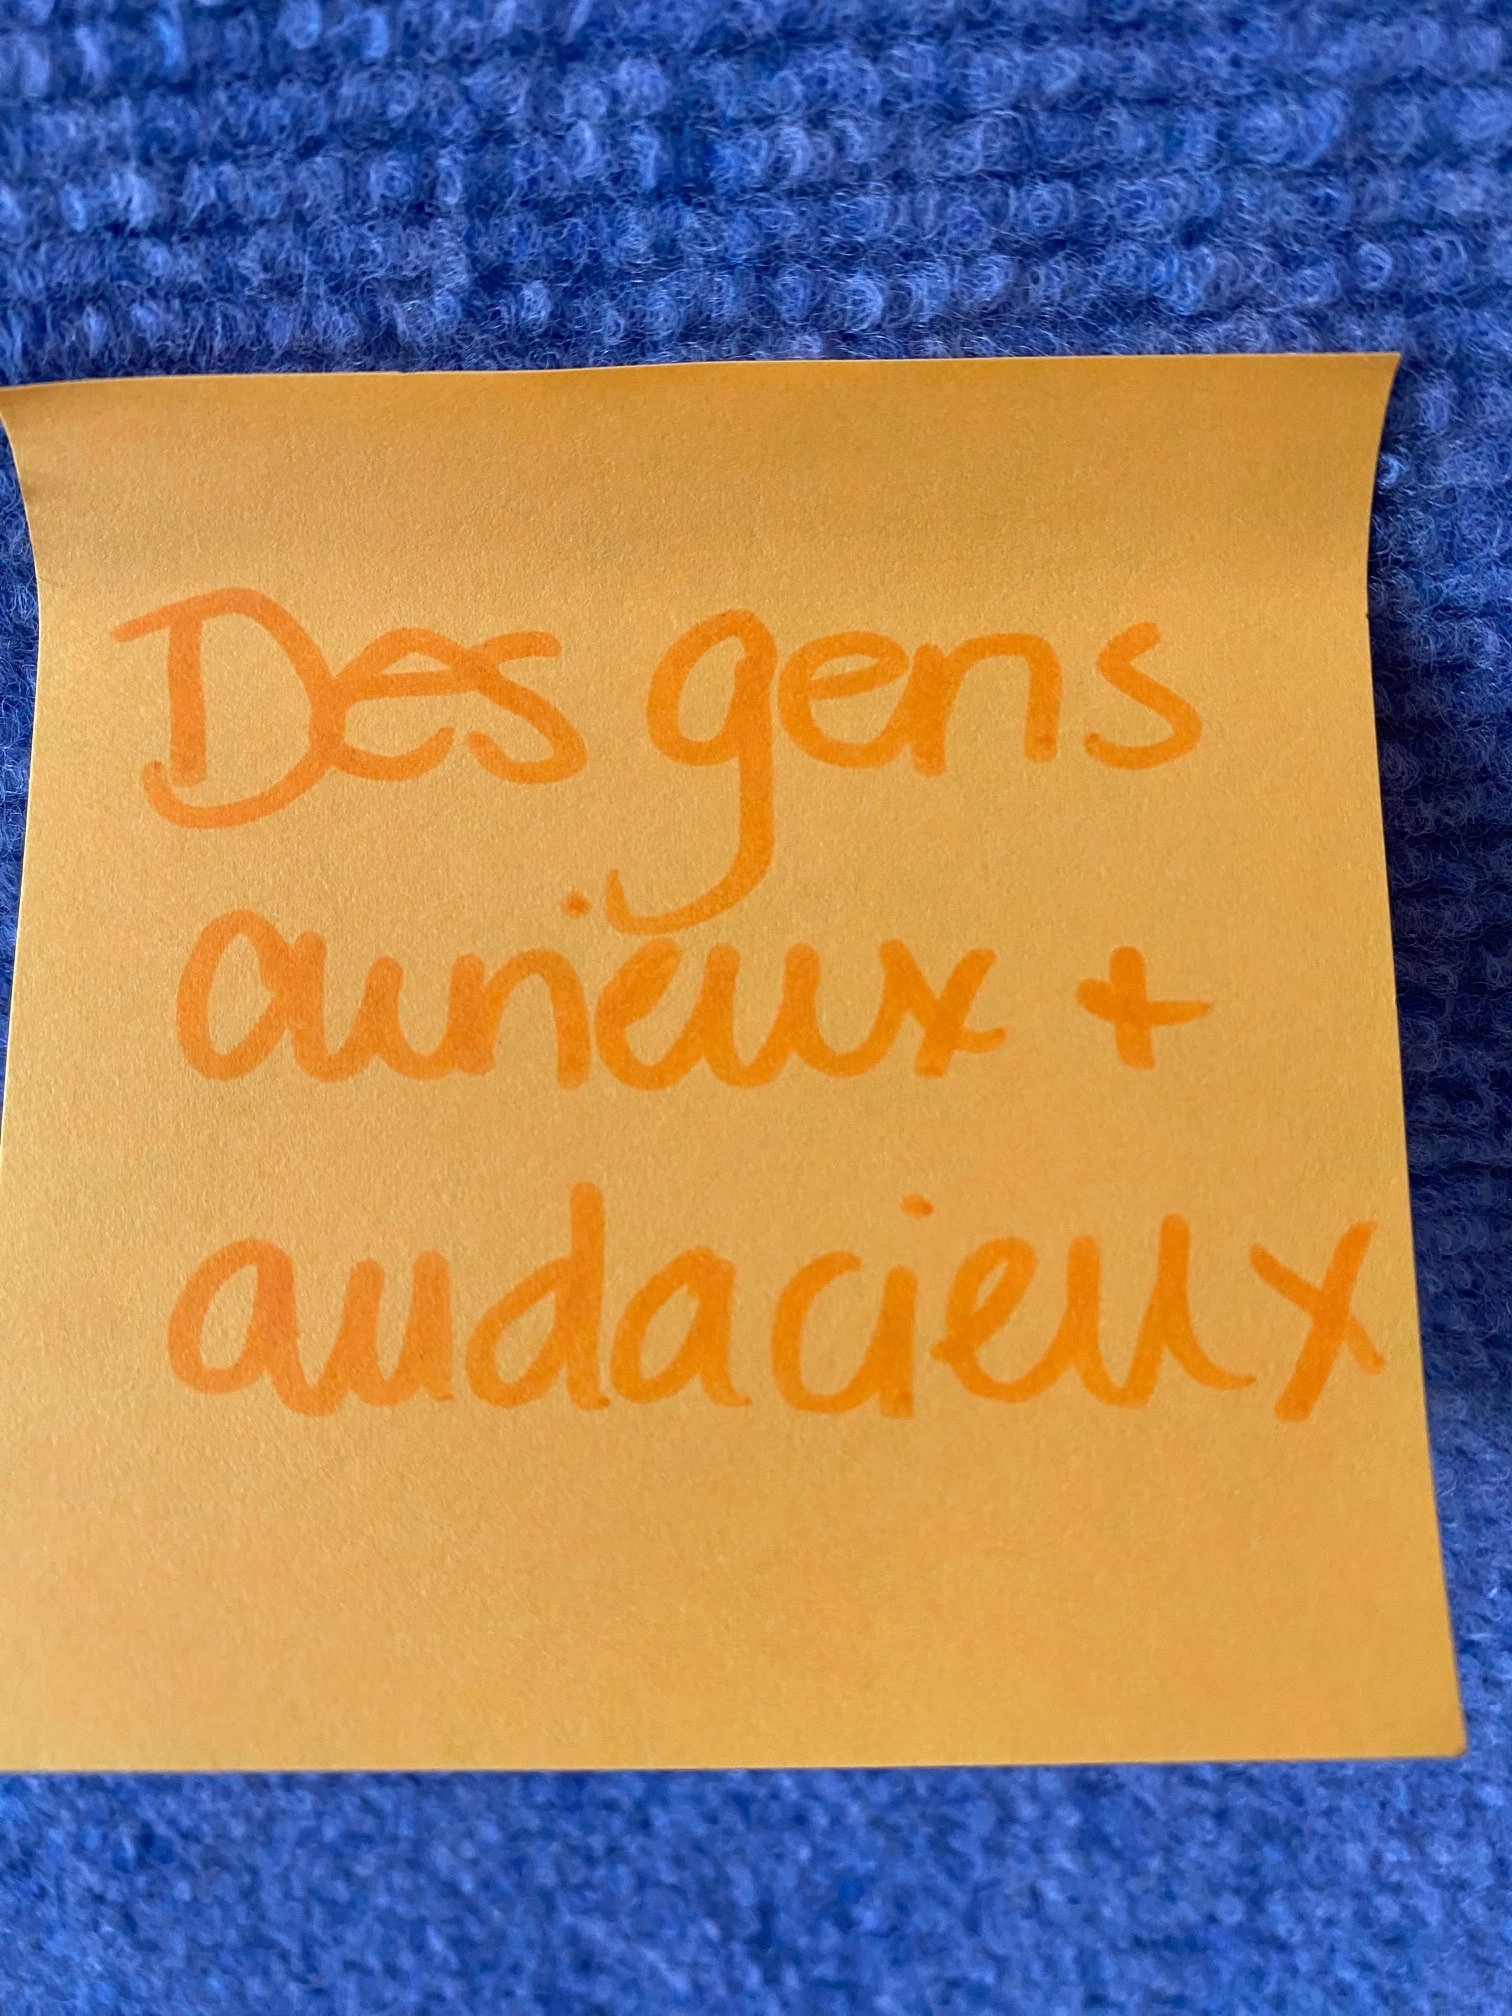 Des gens
curieux +
audacieux